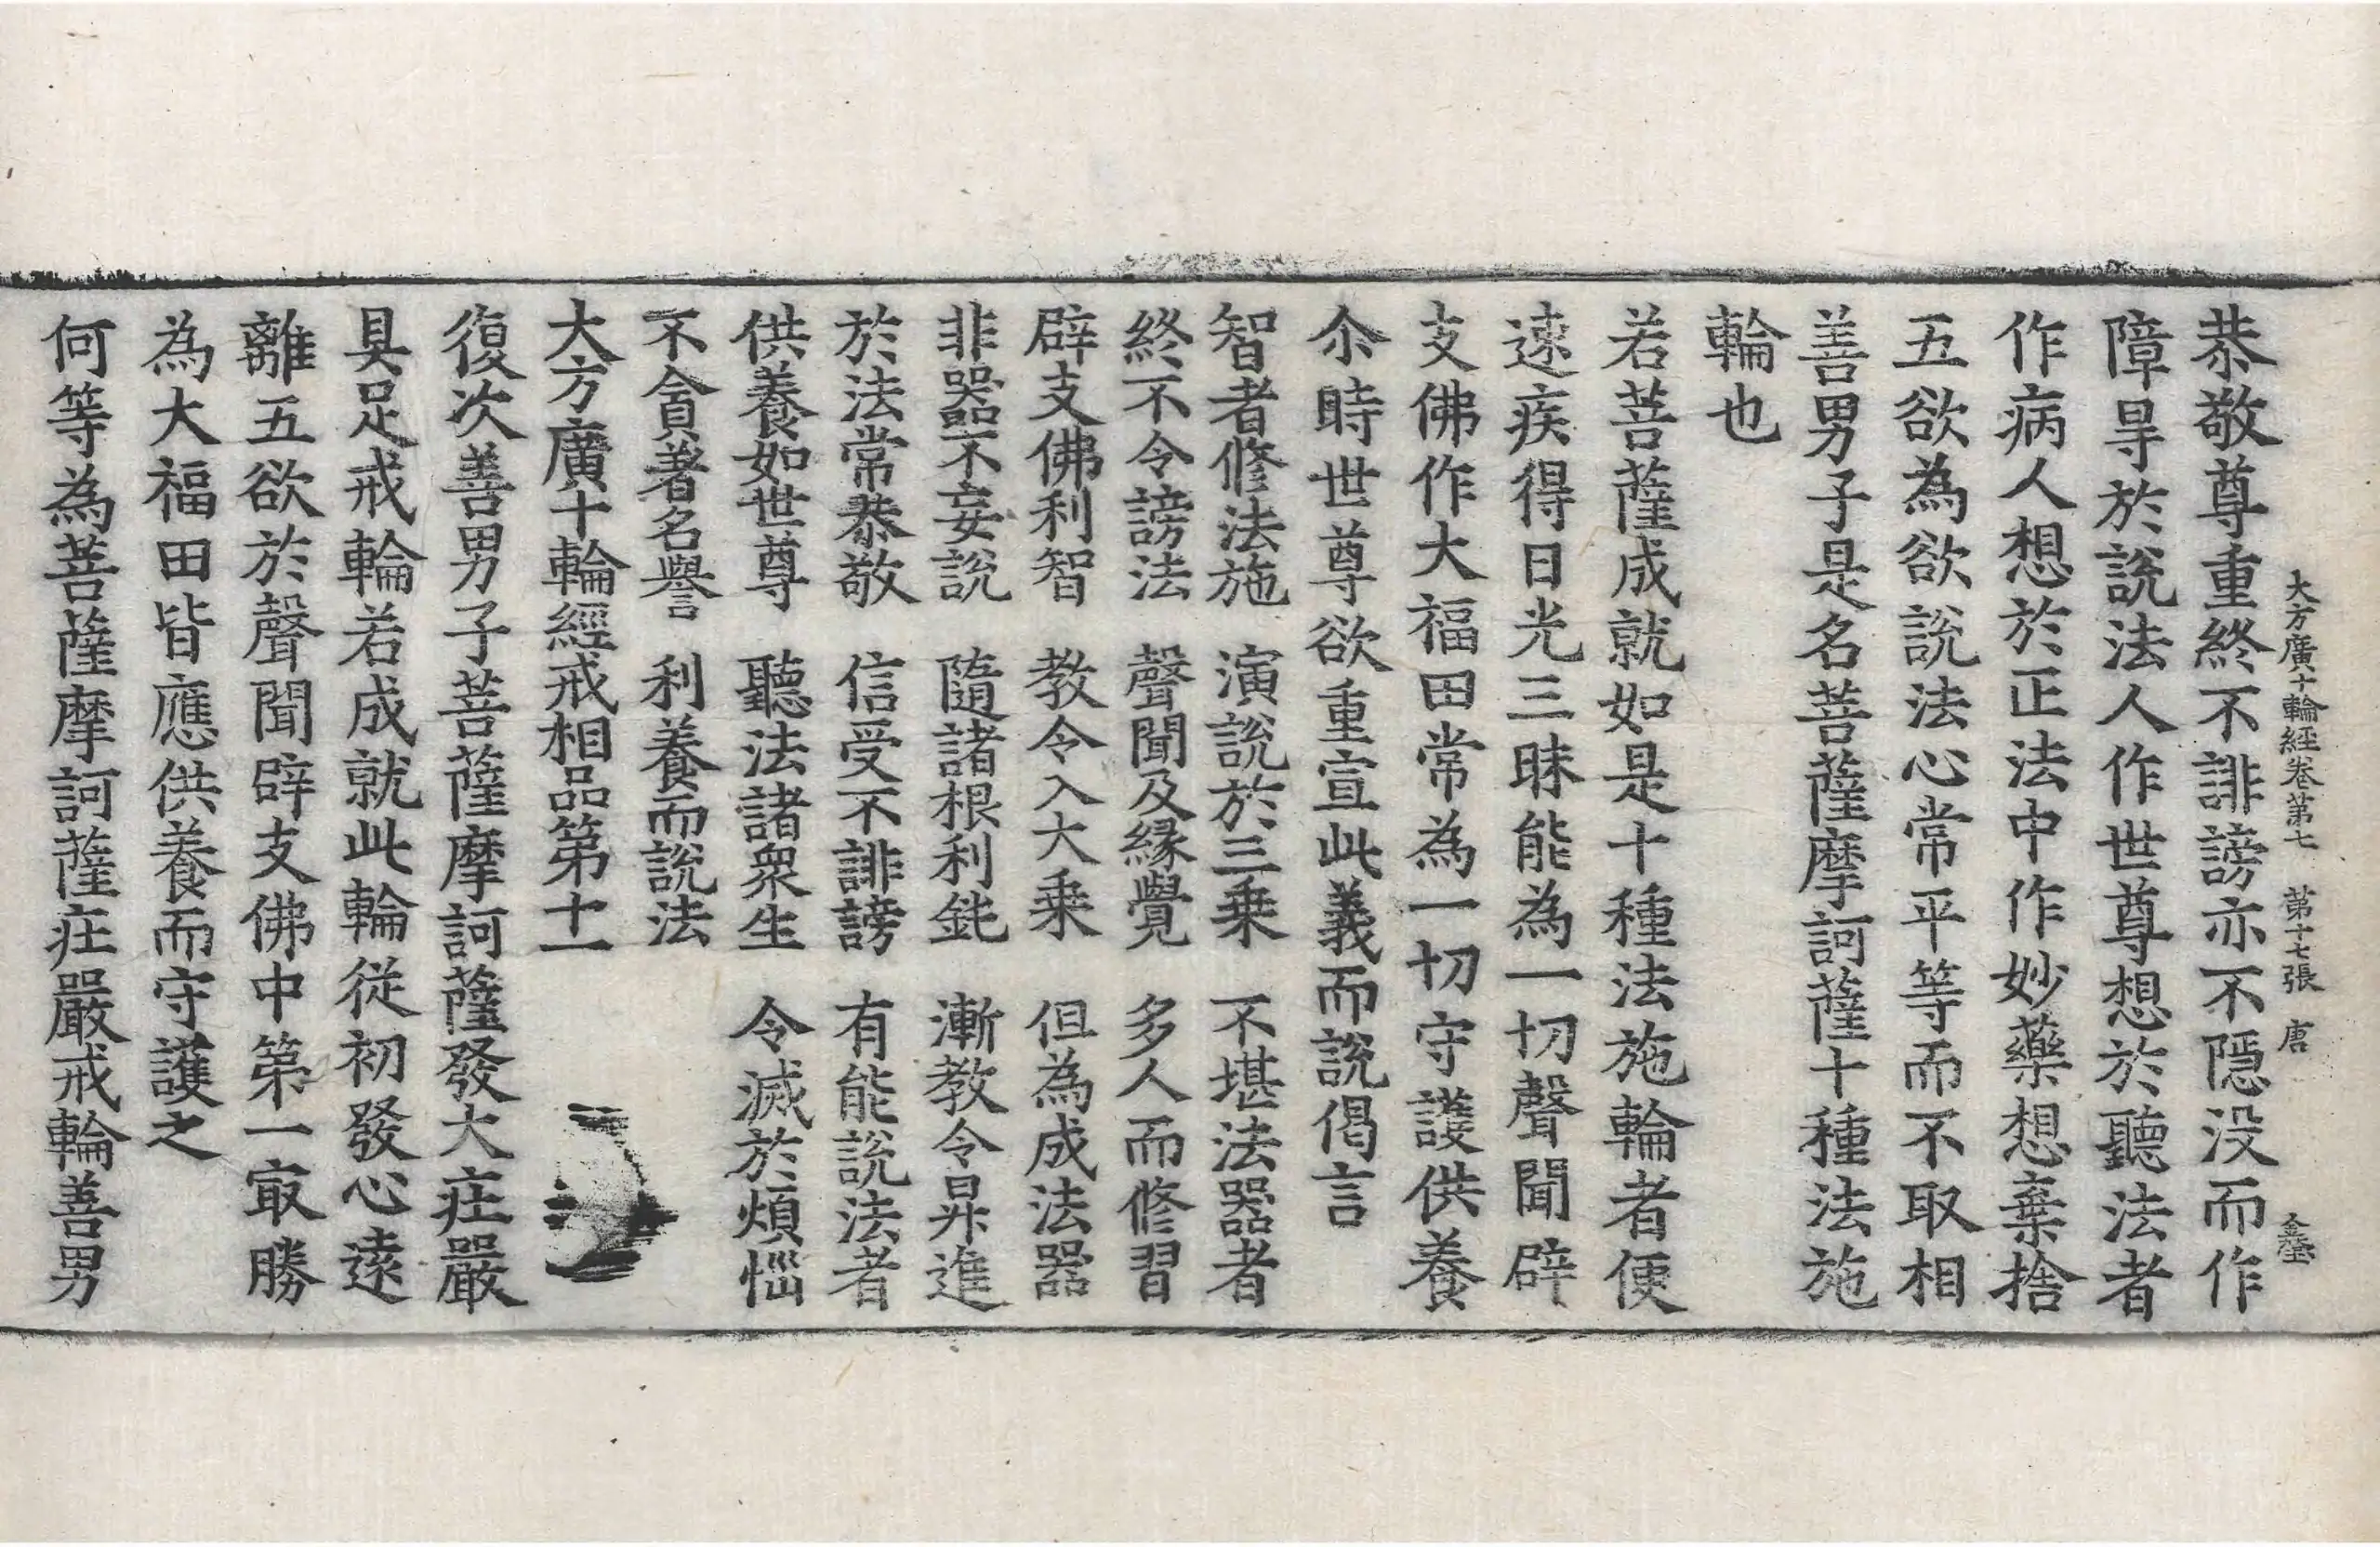 大方廣十輪經卷第七 第十七張 唐
恭敬尊重終不誹謗亦不隱没而作
障㝵於說法人作世尊想於聽法者
作病人想於正法中作妙藥想棄捨
五欲為欲說法心常平等而不取相
善男子是名菩薩摩訶薩十種法施
輪也
若菩薩成就如是十種法施輪者便
速疾得日光三昧能為一切聲聞辟
支佛作大福田常為一切守護供養
尒時世尊欲重宣此義而說偈言
智者修法施 演說於三乗 不堪法器者
終不令謗法 聲聞及縁覺 多人而修習
辟支佛利智 教令入大乗 但為成法器
非器不妄說 隨諸根利鈍 漸教令昇進
於法常恭敬 信受不誹謗 有能說法者
供養如世尊 聽法諸衆生 令滅於煩惱
不貪著名譽 利養而說法
大方廣十輪經戒相品第十一
復次善男子菩薩摩訶薩發大莊嚴
具足戒輪若成就此輪従初發心遠
離五欲於聲聞辟支佛中第一㝡勝
為大福田皆應供養而守護之
何等為菩薩摩訶薩莊嚴戒輪善男